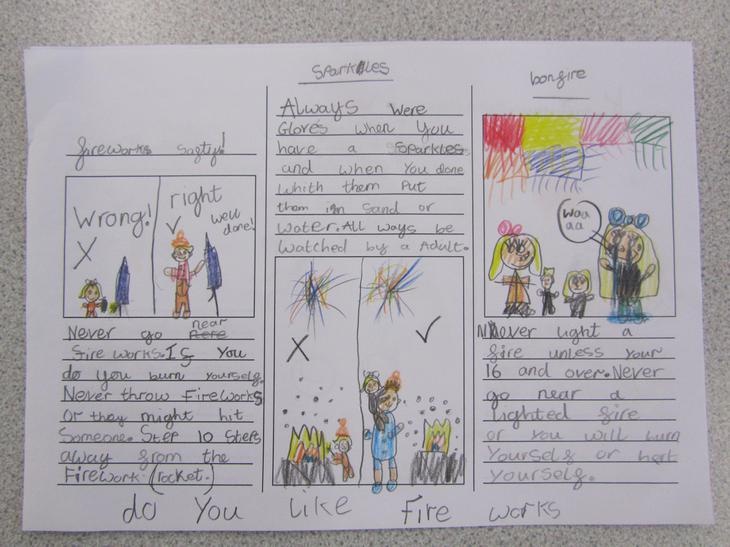 fireworks safty!
Wrong!
right
well
done!
Never go near
fire works. If you
do you burn yourself.
Never throw Fireworks
Or they might hit
Someone. Step 10 Steps
away from the
Firework (rocket.)
Sparkles
Always were
Gloves when you
have a Sparkles
and when you done
whith them put
them ign Sand or
water. All ways be
watched by a Adult.
bonfire
Waa
aa
Never light a
fire unless your
16 and over. Never
go near a
lighted fire
or you will burn
yourself or hert
yourself.
do You like Fire works